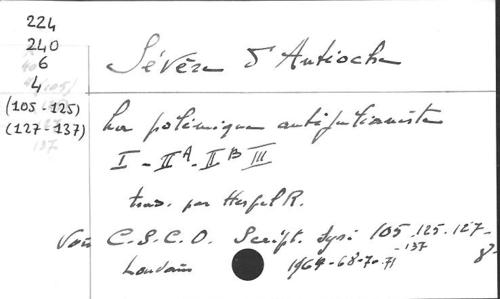 224
240
6
4
(105-125)
(127-137)
Sévère d'Antioche
La polémique antijulianiste
I - II A - II B III
trad. par Hespel R.
Voir C.S.C.O. Script. Syri 105-125-127-137
Louvain 1964-68-70-71 8°